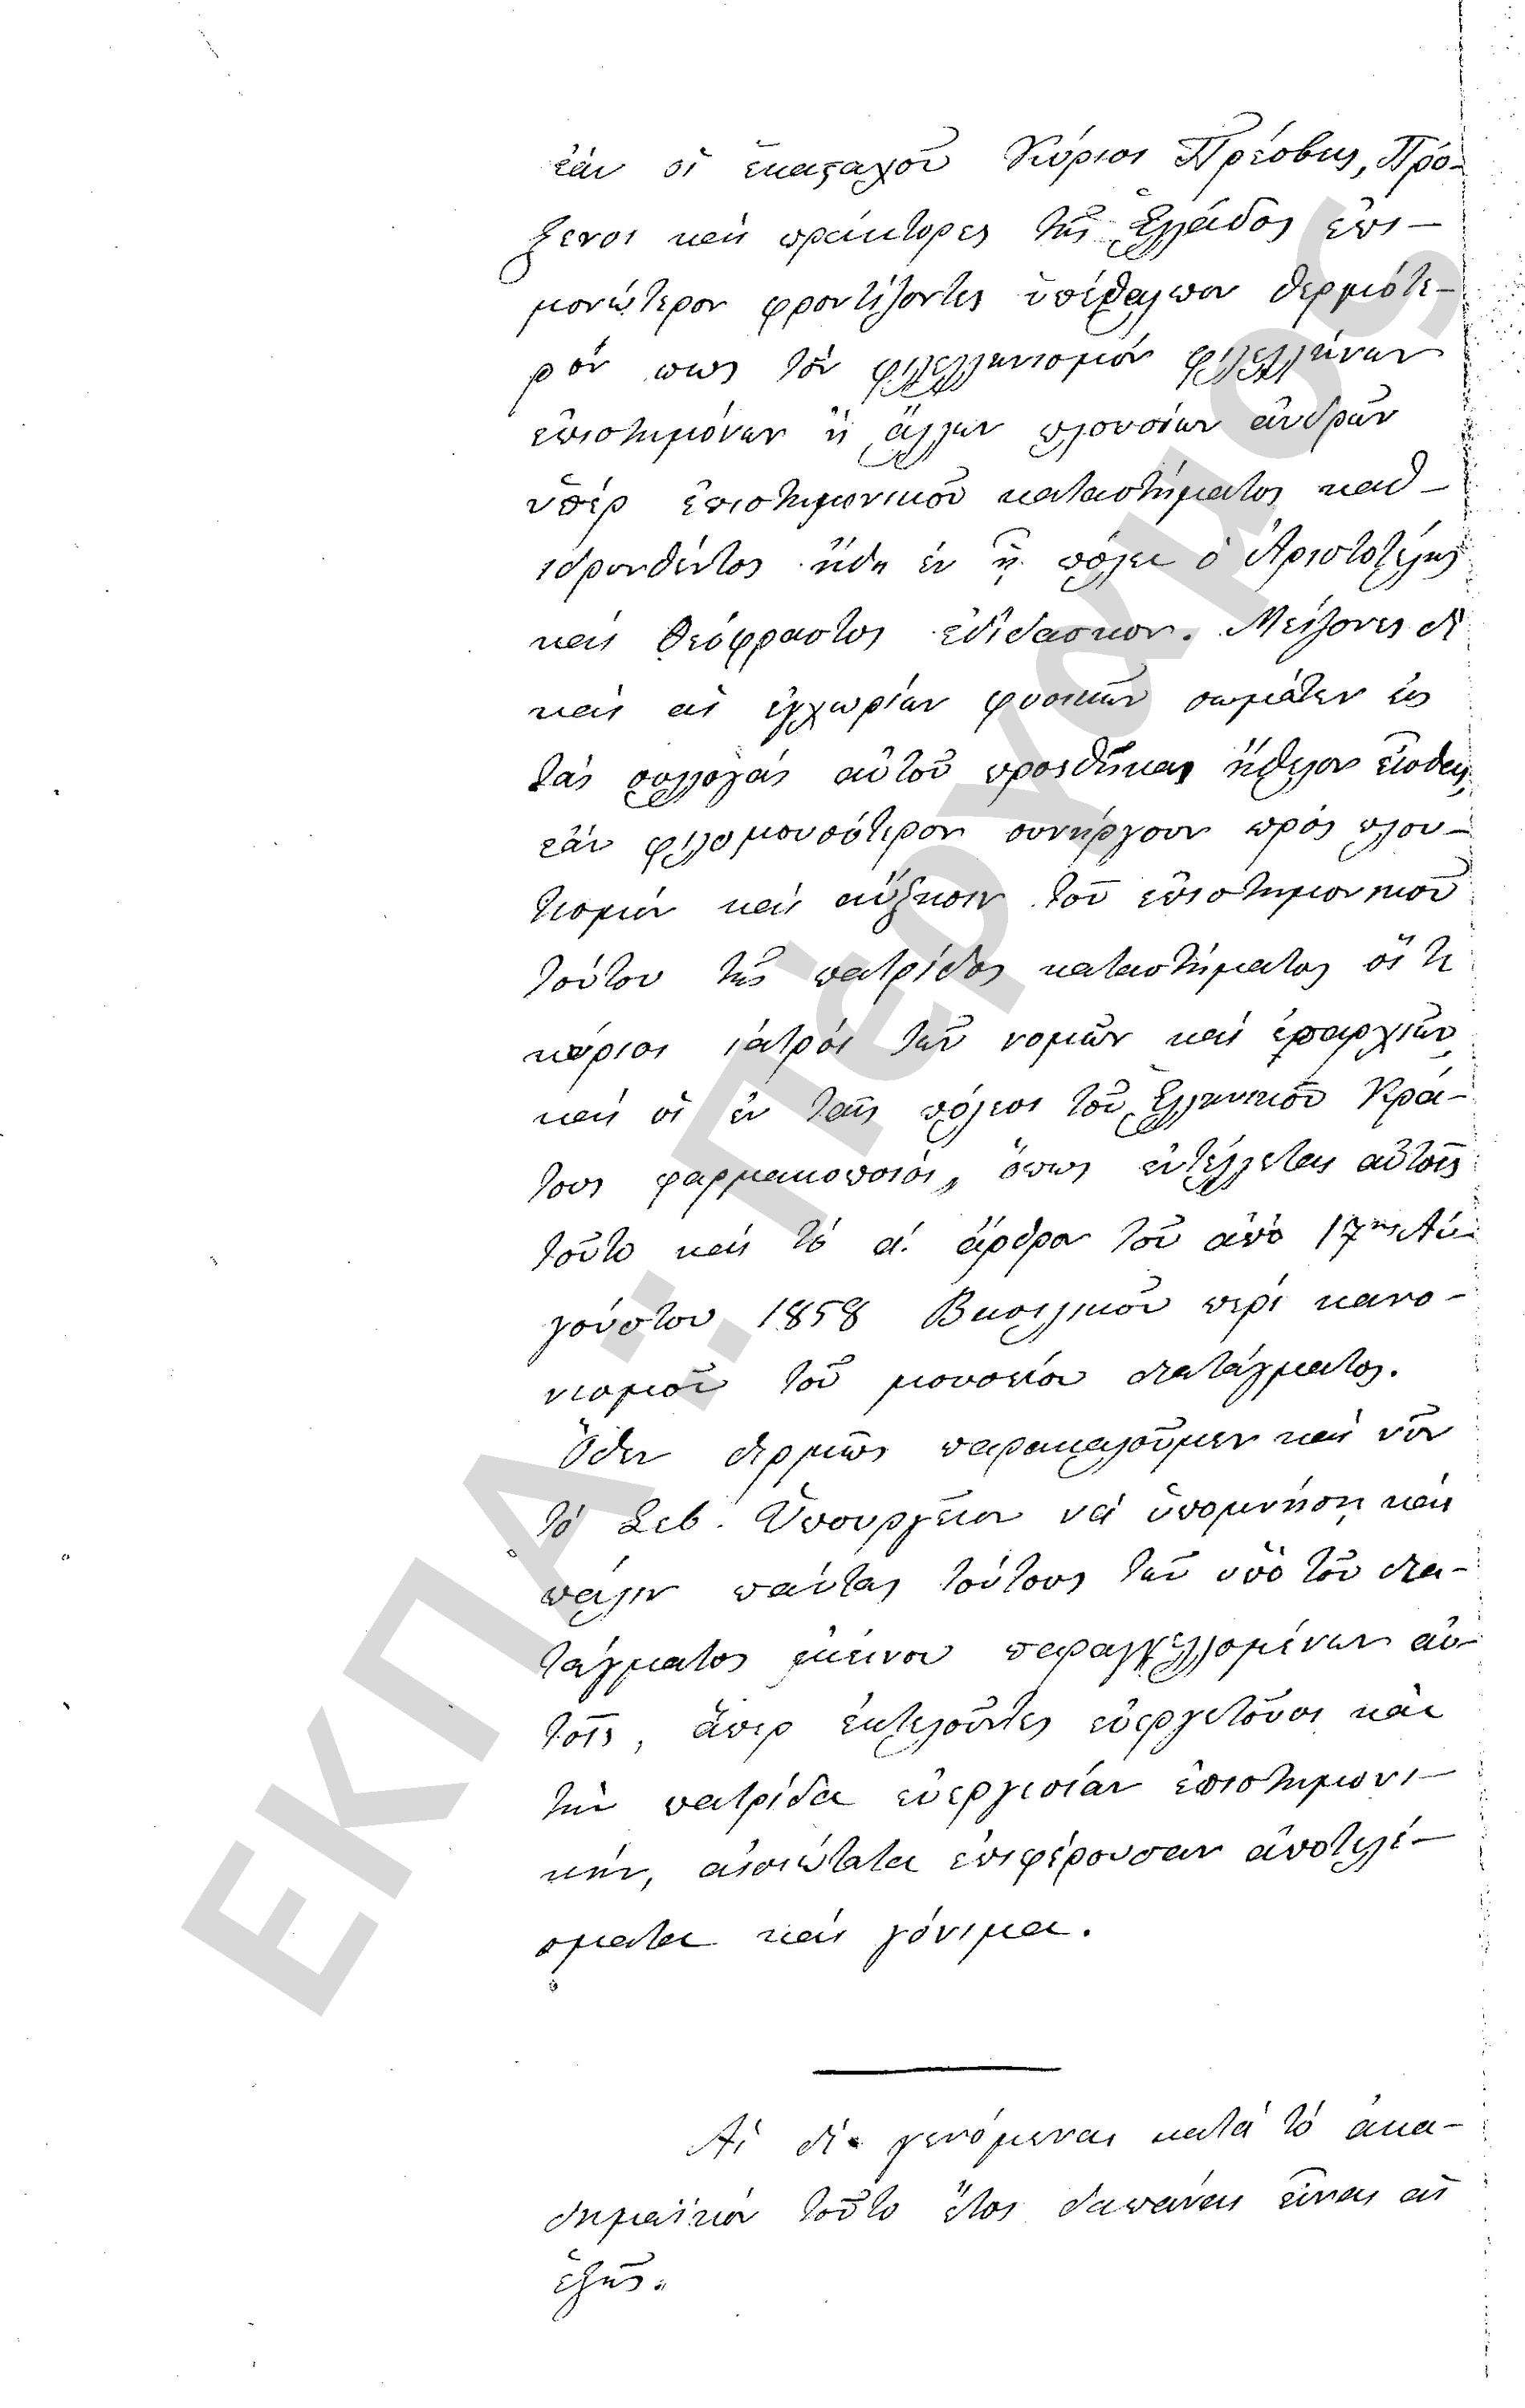 ἐὰν οἱ ἑκασταχοῦ Κύριοι Πρέσβεις, Πρό-
ξενοι καὶ πράκτορες τῆς Ἑλλάδος ἐπι-
μονώτερον φροντίζοντες ὑπέθαλπον θερμότε-
ρόν πως τὸν φιλελληνισμὸν φιλελλήνων
ἐπιστημόνων ἢ ἄλλων πλουσίων ἀνδρῶν
ὑπὲρ ἐπιστημονικοῦ καταστήματος καθ-
ιδρυνθέντος ἤδη ἐν ᾗ πόλει ὁ Ἀριστοτέλης
καὶ Θεόφραστος ἐδίδασκον. Μείζονες δὲ
καὶ αἱ ἐγχωρίων φυσικῶν σωμάτων εἰς
τὰς συλλογὰς αὐτοῦ προσθῆκαι ἤθελον εἶσθαι,
ἐὰν φιλομουσότερον συνήργουν πρὸς πλου-
τισμὸν καὶ αὔξησιν τοῦ ἐπιστημονικοῦ
τούτου τῆς πατρίδος καταστήματος οἵ τε
κύριοι ἰατροὶ τῶν νομῶν καὶ ἐπαρχιῶν
καὶ οἱ ἐν ταῖς πόλεσι τοῦ Ἑλληνικοῦ Κρά-
τους φαρμακοποιοί, ὅπως ἐντέλλεται αὐτοῖς
τοῦτο καὶ τὸ α΄. ἄρθρον τοῦ ἀπὸ 17ης Αὐ-
γούστου 1858 Βασιλικοῦ περὶ κανο-
νισμοῦ τοῦ μουσείου διατάγματος.
Ὅθεν θερμῶς παρακαλοῦμεν καὶ νῦν
τὸ Σεβ. Ὑπουργεῖον νὰ ὑπομνήσῃ καὶ
πάλιν πάντας τούτους τῶν ὑπὸ τοῦ δια-
τάγματος ἐκείνου παραγγελλομένων αὐ-
τοῖς, ἅπερ ἐκτελοῦντες εὐεργετοῦσι καὶ
τὴν πατρίδα εὐεργεσίαν ἐπιστημονι-
κήν, αἰσιώτατα ἐπιφέρουσαν ἀποτελέ-
σματα καὶ γόνιμα.
Αἱ δὲ γενόμεναι κατὰ τὸ ἀκα-
δημαϊκὸν τοῦτο ἔτος δαπάναι εἶναι αἱ
ἑξῆς.
ΕΚΠΑ:Πέργαμος